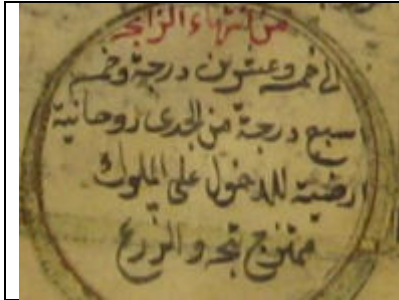 من انتهاء الرابعة
الى خمسه وعشرين درجة وخمسه
اسبع درجة من الجدى روحانية
ارضية للدخول على الملوك
ممتزج والزرع